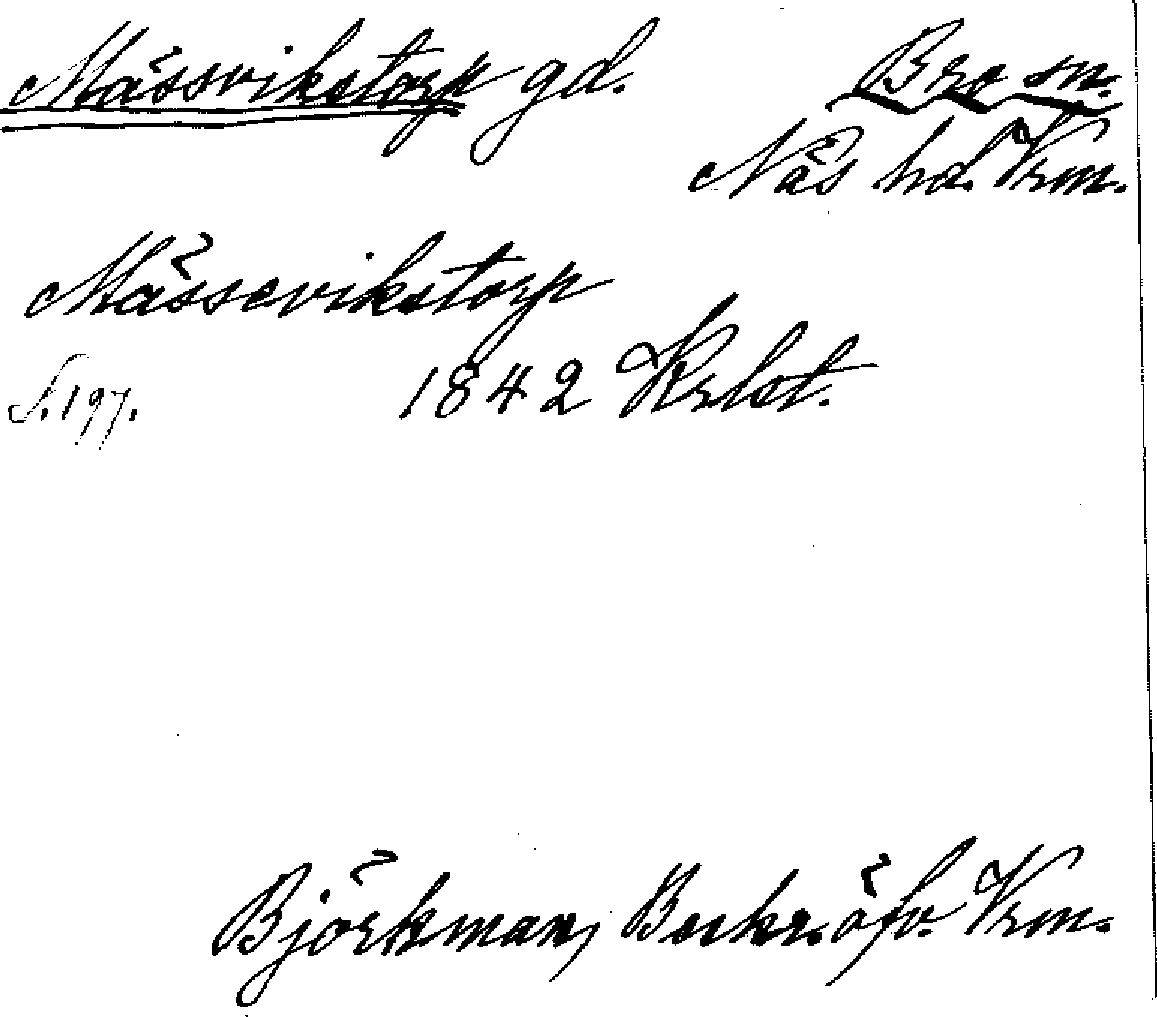 Mässvikstorp gd. Bro sn.
Näs hd. Vrm.
Mässevikstorp
S. 197. 1842 Krlst.
Björkman, Beskr. öfv. Vrm.